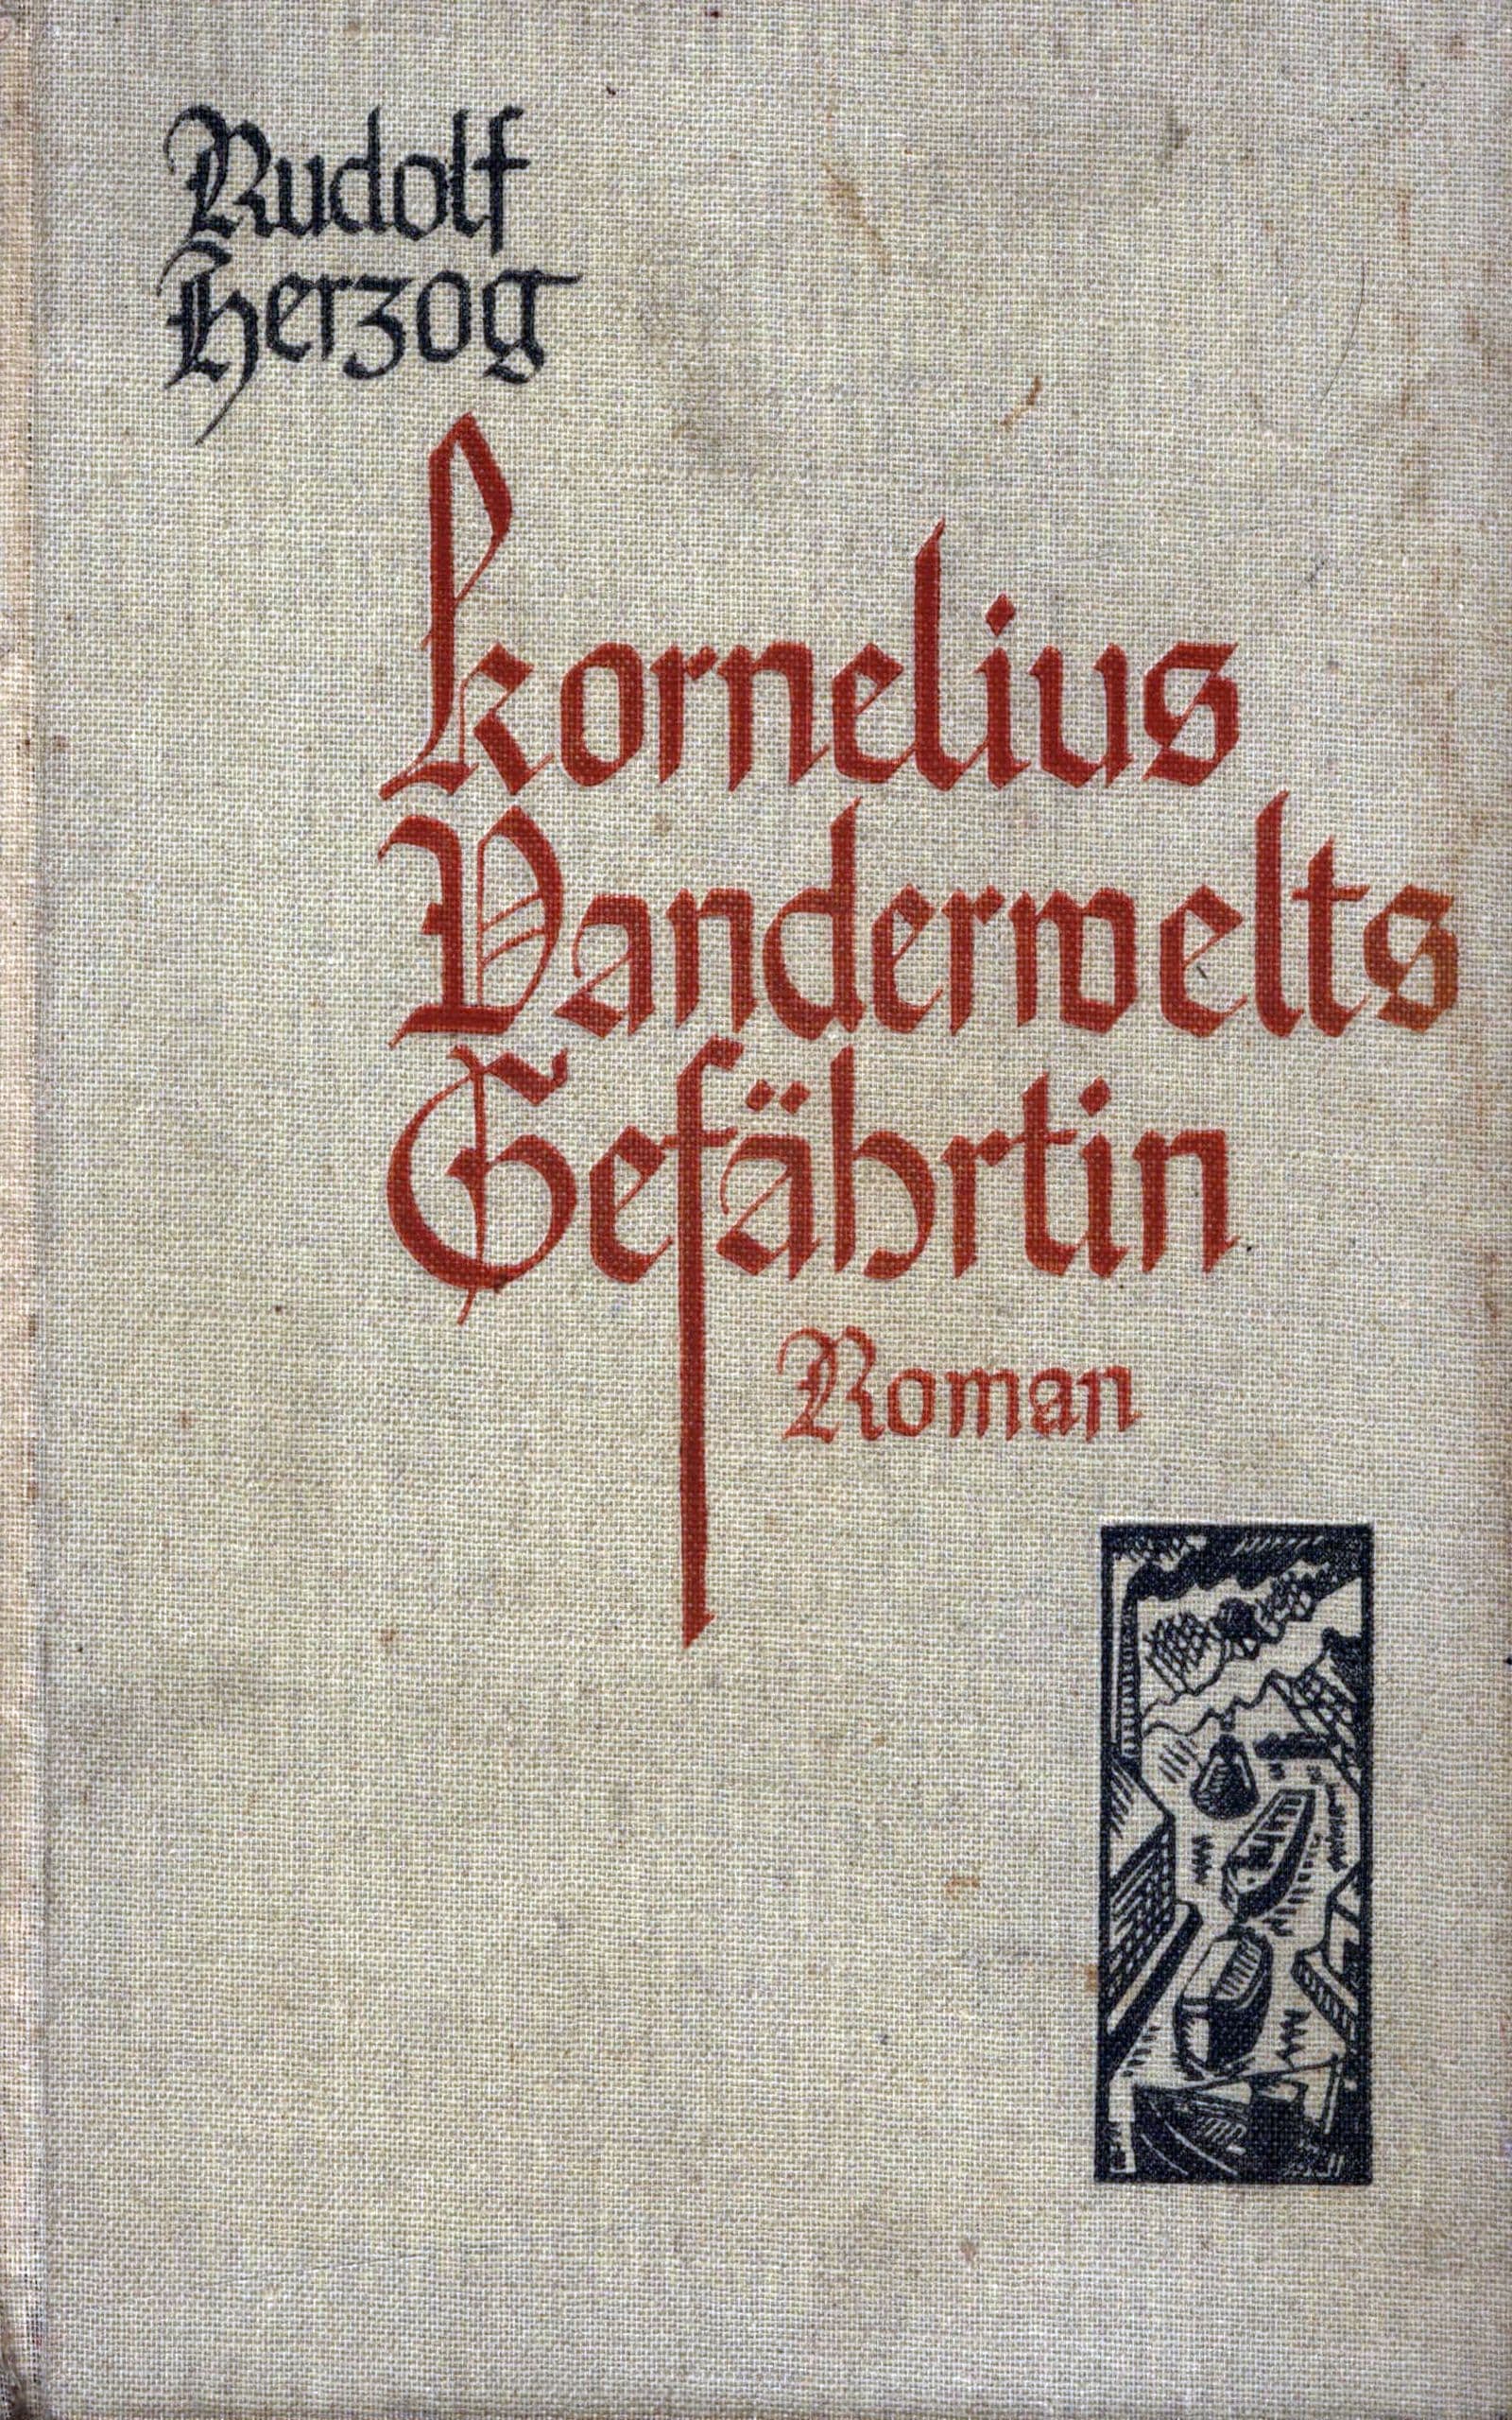 Rudolf
Herzog
Kornelius
Vanderwelts
Gefährtin
Roman